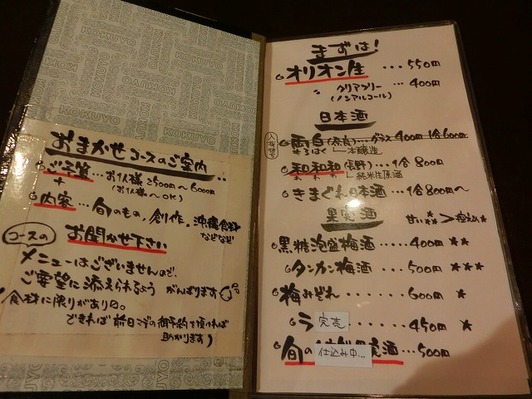 おまかせコースのご案内
ご予算…お1人様2500円〜6000円
(2人様〜OK)
+
内容…旬のもの、創作、沖縄食材
などなど
コースの お聞かせ下さい
メニューはございませんので、
ご要望に添えられるよう がんばります
(食材に限りがあり。
できれば前日迄の御予約を頂ければ
助かります)
KOKUYO
まずは!
オリオン生…550円
クリアフリー…400円
(ノンアルコール)
日本酒
雨鳥(奈良)…グラス400円 1合600円
本醸造
和和和(長野)…1合800円
純米吟醸
きまぐれ日本酒…1合800円〜
果実酒
黒糖泡盛梅酒……400円 ★★
タンカン梅酒……500円 ★★★
梅みぞれ……600円 ★
ラ 完売……450円 ★
旬の 仕込み中… 酒…500円